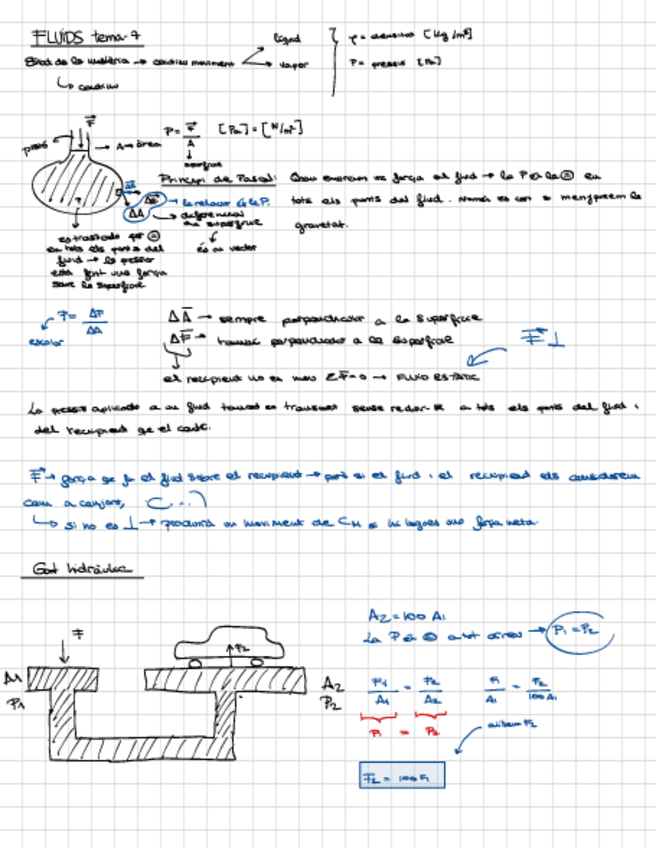 FLUÏDS tema 7
Estat de la matèria → continu moviment
líquid
vapor
ρ = densitat [kg/m³]
P = pressió [Pa]
↳ continu
F
A → àrea
P = F/A [Pa] = [N/m²]
superfície
Principi de Pascal: Quan exercim una força al fluid → la P és la = en
tots els punts del fluid. Només es cert si menyspreem la
gravetat.
ΔF
ΔA
→ la relació és la P.
→ diferencial
de superfície
és un vector
en tots els punts del
fluid → la pressió
està fent una força
sobre la superfície
P = ΔF/ΔA
escalar
ΔA → sempre perpendicular a la superfície
ΔF → també perpendicular a la superfície
F ⊥
el recipient no es mou ΣF=0 → FLUID ESTÀTIC
La pressió aplicada a un fluid tancat es transmet sense reduir-se a tots els punts del fluid i
del recipient que el conté.
F → força que fa el fluid sobre el recipient → però si el fluid i el recipient els considerem
com a conjunt, (...)
↳ si no és ⊥ → produirà un moviment de CM
Gat hidràulic
F
F₂
A₁
P₁
A₂
P₂
A₂ = 100 A₁
La P és = a tot arreu → P₁ = P₂
F₁/A₁ = F₂/A₂
F₁/A₁ = F₂/100 A₁
P₁ = P₂
aïllem F₂
F₂ = 100 F₁